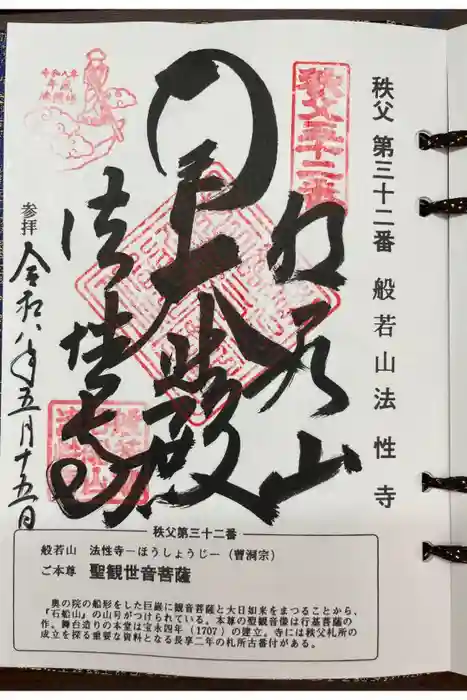 秩父 第三十二番 般若山 法性寺
秩父三十二番
般若山
法性寺
参拝 令和八年五月十五日
秩父第三十二番
般若山　法性寺―ほうしょうじ―（曹洞宗）
ご本尊　聖観世音菩薩
奥の院の船形をした巨巌に観音菩薩と大日如来をまつることから、
『石船山』の山号がつけられている。本尊の聖観音像は行基菩薩の
作。舞台造りの本堂は宝永四年（1707）の建立。寺には秩父札所の
成立を探る重要な資料となる長享二年の札所古番付がある。